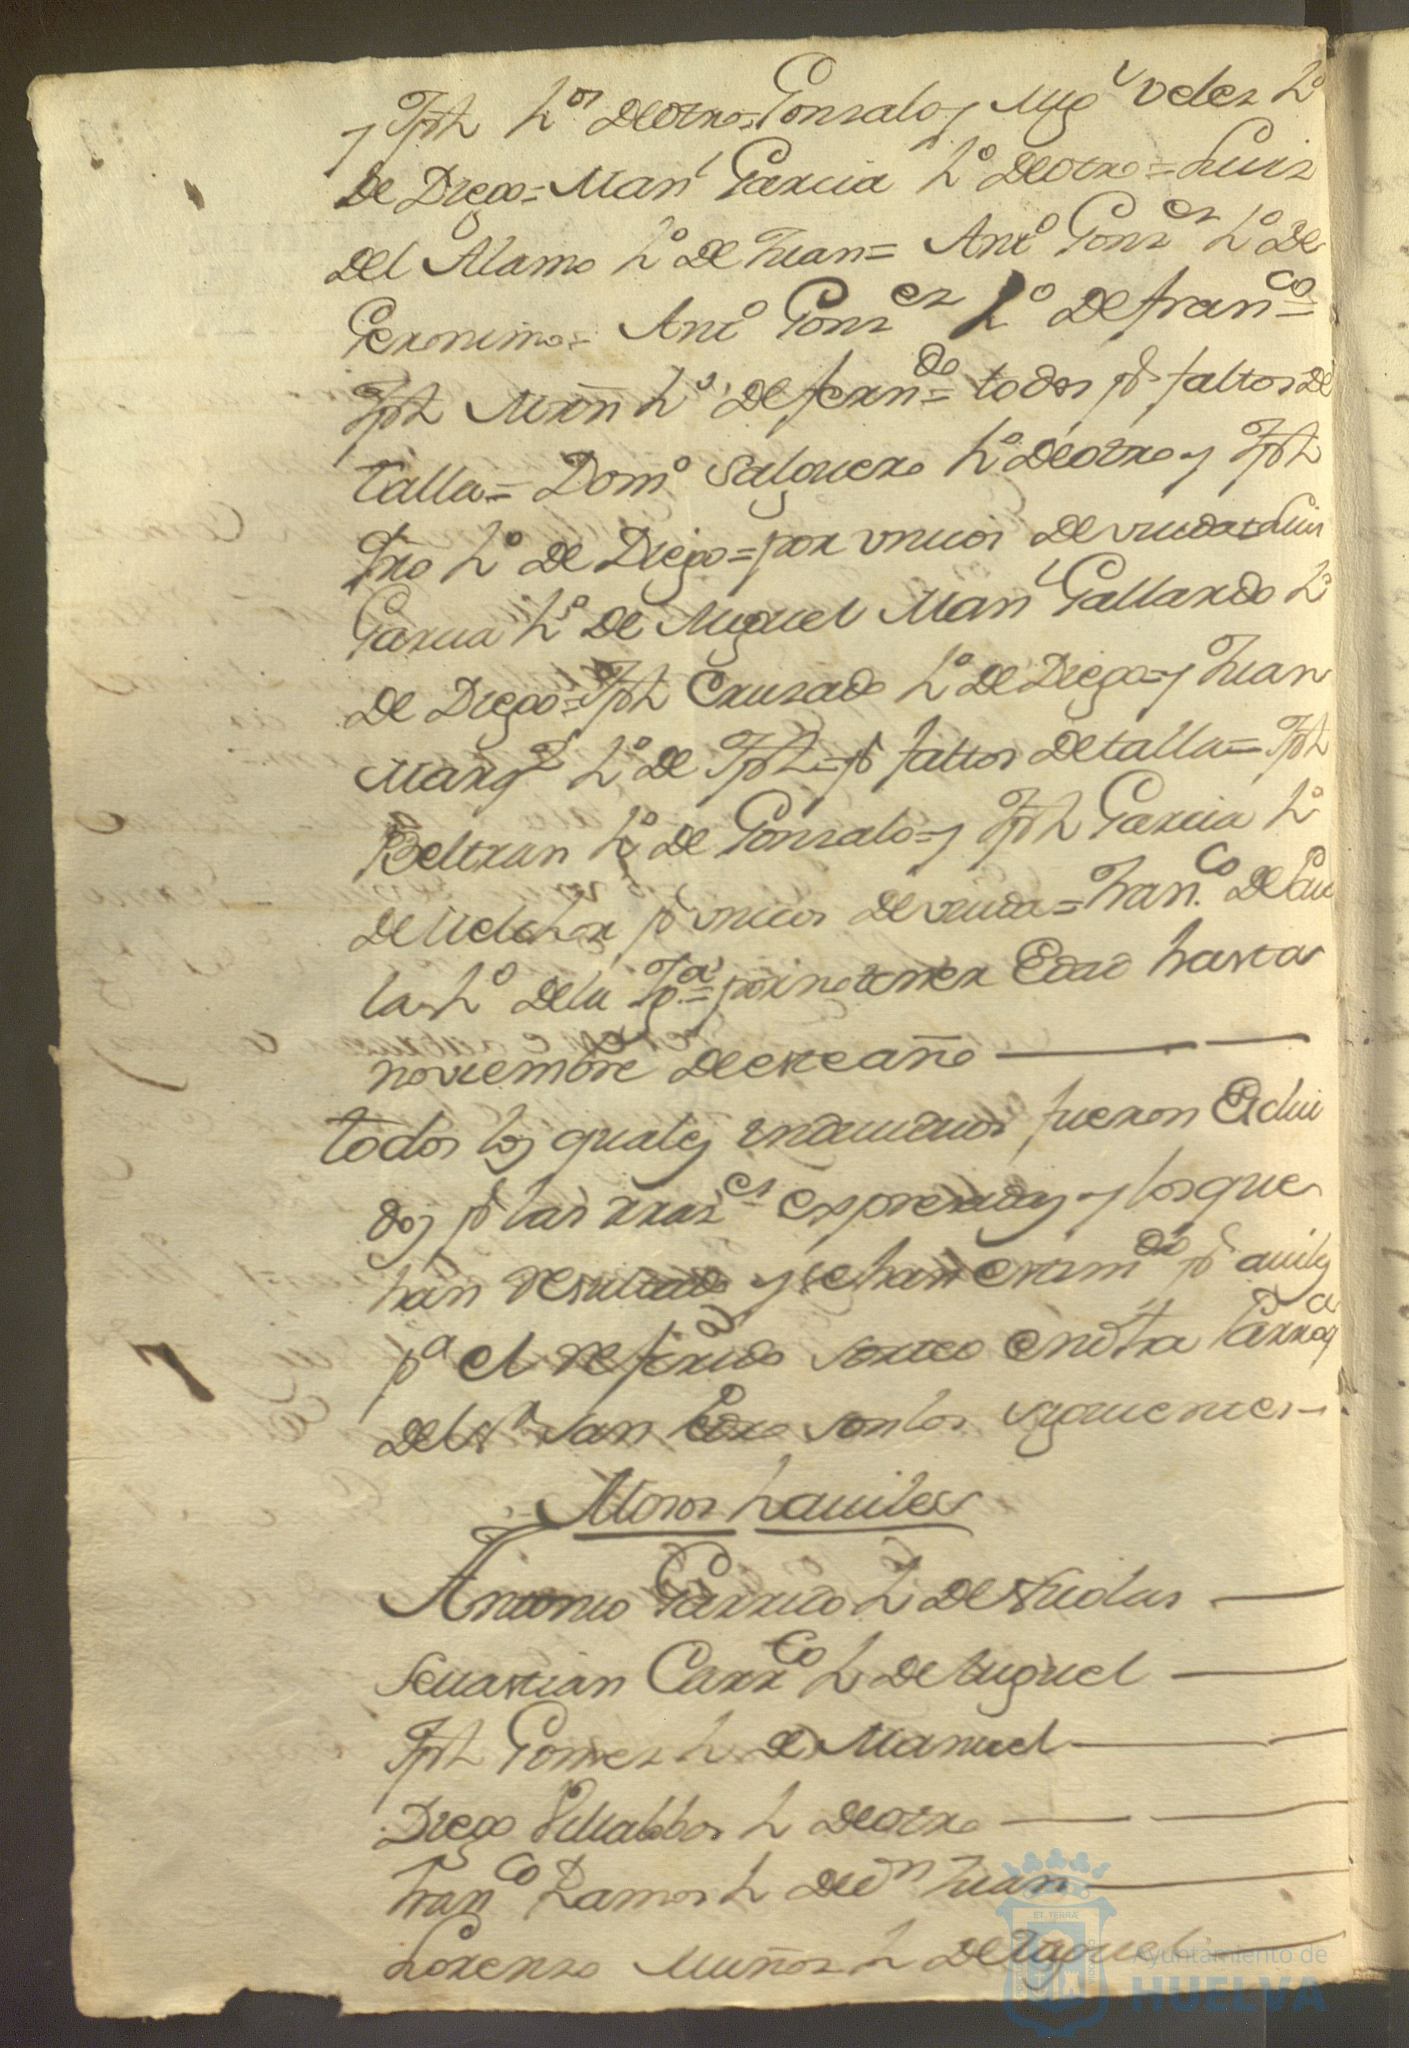 y Jph h.os de otro = Gonzalo y Mig.l Velez h.o
de Diego = Man.l Garcia h.o de otro = Luis
del Alamo h.o de Juan = Ant.o Gonz.ez h.o de
Geronimo = Ant.o Gonz.ez h.o de fran.co =
Jph Mrñ h.o de fern.do = todos p.r faltos de
talla = Dom.o Salguero h.o de otro y Jph
h.o de Diego = por unicos de viuda = Luis
Garcia h.o de Miguel Man.l Gallardo h.o
de Diego = Jph Cruzado h.o de Diego = y Juan
Marq.z h.o de Jph = p.r faltos de talla = Jph
Beltran h.o de Gonzalo = y Jph Garcia h.o
de Melchor p.r unicos de viuda = Fran.co de
la h.o de la Ig.a = por no tener Edad hasta
noviembre de este año
todos los quales yndividuos fueron Exclui
dos p.r las rraz.es expresadas y los que
han resultado y se han estim.do p.r aviles
p.a el referido sorteo en dha
del S.r San Pedro son los siguientes
Mozos haviles
Antonio Garrido h de Nicolas
Sevastian Carr.co h de Miguel
Jph Gomez h de Manuel
Diego Villalobos h de otro
Fran.co Ramos h de d.n Juan
Lorenzo Muñoz h de Miguel
Ayuntamiento de
HUELVA